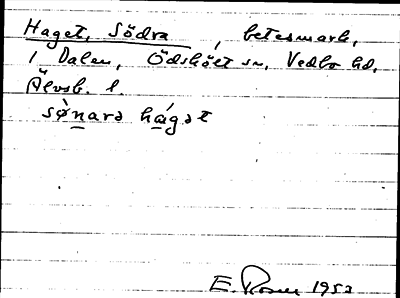 Haget, Södra, betesmark,
i Dalen, Ödskölt sn, Vedbo hd,
Älvsb. l.
sø̀narə há̱gət
E. Rosen 1953